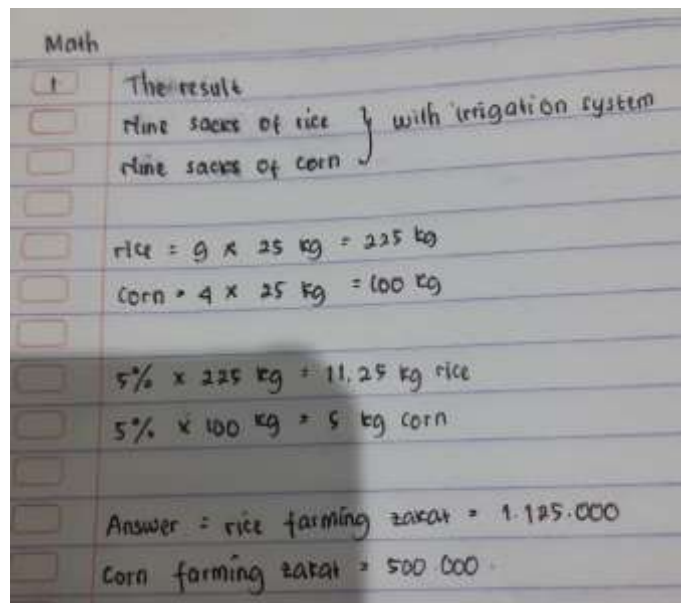 Math
1 The result
Nine sacks of rice } with irrigation system
Nine sacks of corn
rice = 9 x 25 kg = 225 kg
Corn = 4 x 25 kg = 100 kg
5% x 225 kg = 11,25 kg rice
5% x 100 kg = 5 kg corn
Answer = rice farming zakat = 1.125.000
Corn farming zakat = 500 000.